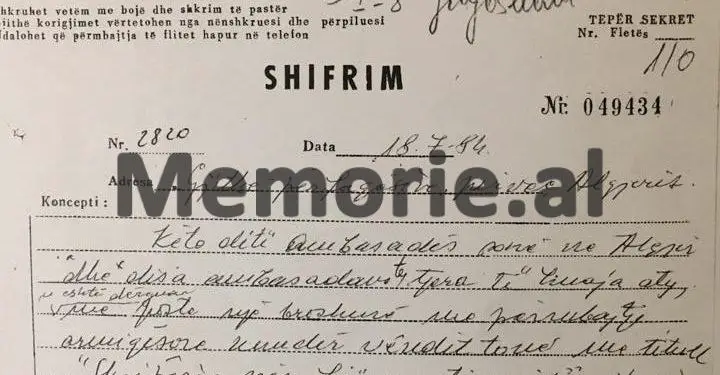 shkruhet vetëm me bojë dhe shkrim të pastër
gjithë korigjimet vërtetohen nga nënshkruesi dhe përpiluesi
Ndalohet që përmbajtja të flitet hapur në telefon
TEPËR SEKRET
Nr. Fletës
1/0
SHIFRIM
Nr. 049434
Nr. 2820 Data 18.7-84.
Memorie.al
Adresa Gjithë përfaqësive, përveç Algjerit.
Koncepti :
Këto ditë ambasadës sonë në Algjer
dhe disa ambasadave të tjera të huaja aty,
u është dërguar
me postë një broshurë me përmbajtje
armiqësore kundër vendit tonë me titull